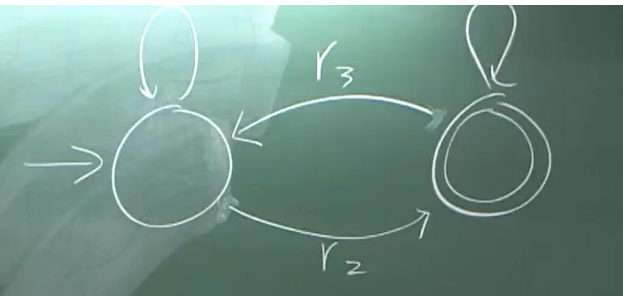 r3
r2